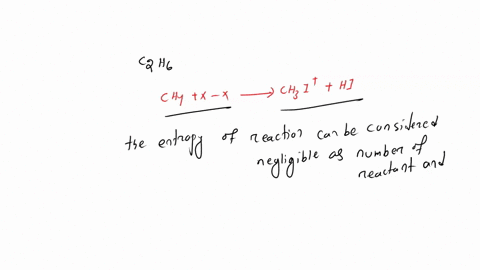 C2H6
CH4 + X - X → CH3I↑ + HI
the entropy of reaction can be considered
negligible as number of
reactant and